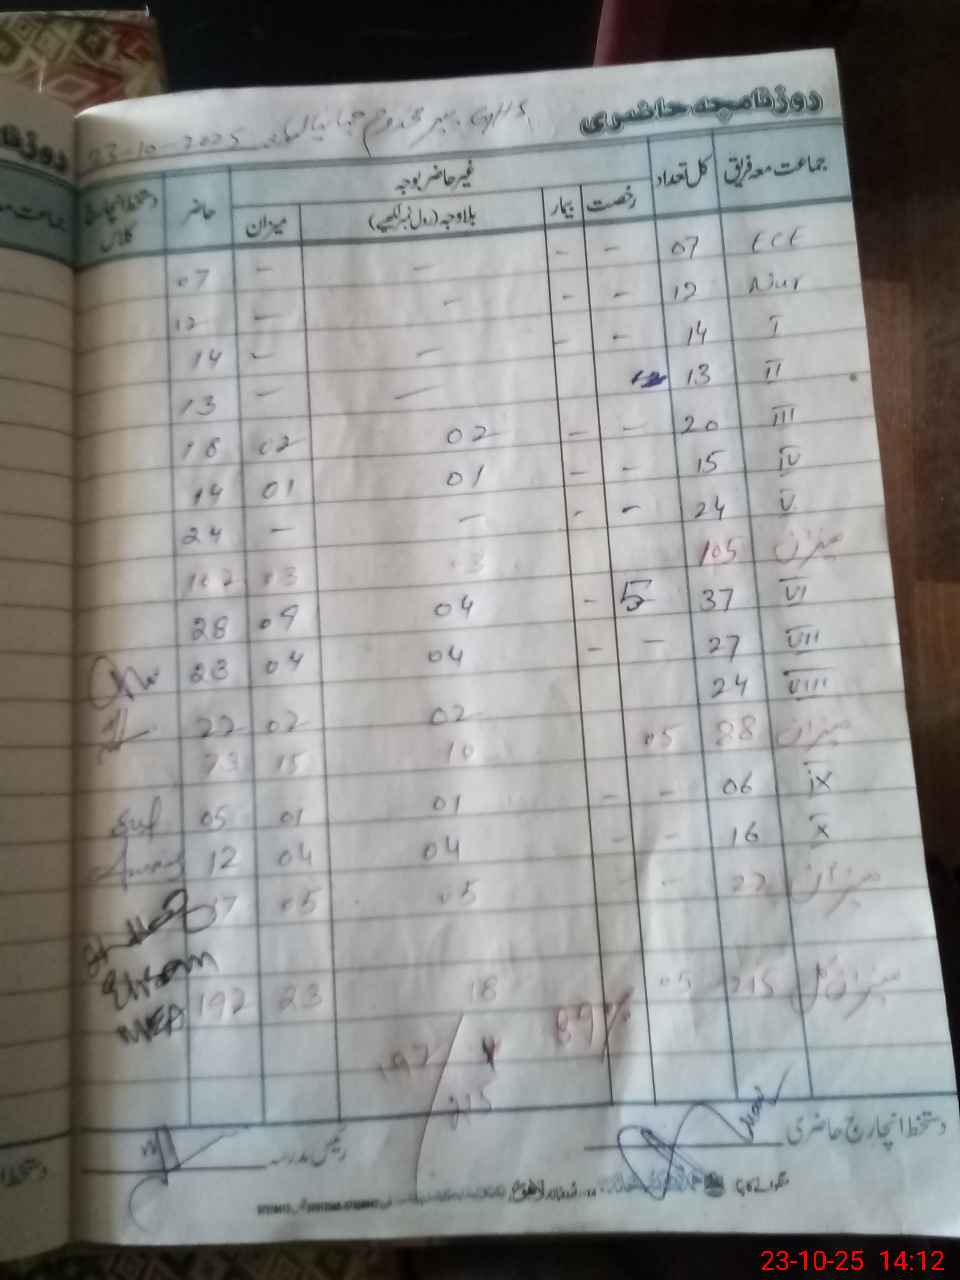 روزنامچہ حاضری
GHS پیر مخدوم جہانیاں 23-10-2025
جماعت معہ فریق کل تعداد غیر حاضر بوجہ حاضر دستخط انچارج کلاس
رخصت بیمار بلاوجہ (رول نمبر لکھیے) میزان
ECE 07 - - - - 07
Nur 12 - - - - 12
I 14 - - - - 14
II 13 - - 13
III 20 - - 02 02 18
IV 15 - - 01 01 14
V 24 - - - - 24
میزان 105 03 03 102
VI 37 5 - 04 09 28
VII 27 - - 04 04 23
VIII 24 02 02 22
میزان 88 05 10 15 73
IX 06 - - 01 01 05
X 16 - - 04 04 12
میزان 22 - - 05 05 17
میزان کل 215 05 18 23 192
89%
192/215
دستخط انچارج حاضری رئیس مدرسہ
23-10-25 14:12